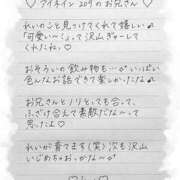 アイネイン 209のお兄さん♡
れいのこと見つけてくれて嬉しい♪
「可愛い〜」って沢山ぎゅーして
くれたね♡
おそろいの飲み物も…いっぱい
色んなお話できて楽しかったな♪
お兄さんとノリとても合って、
ふざけ合えて素敵だな〜って
思ったよ♡
れいが育てます(笑)次も沢山
いじめちゃおっかな〜♪